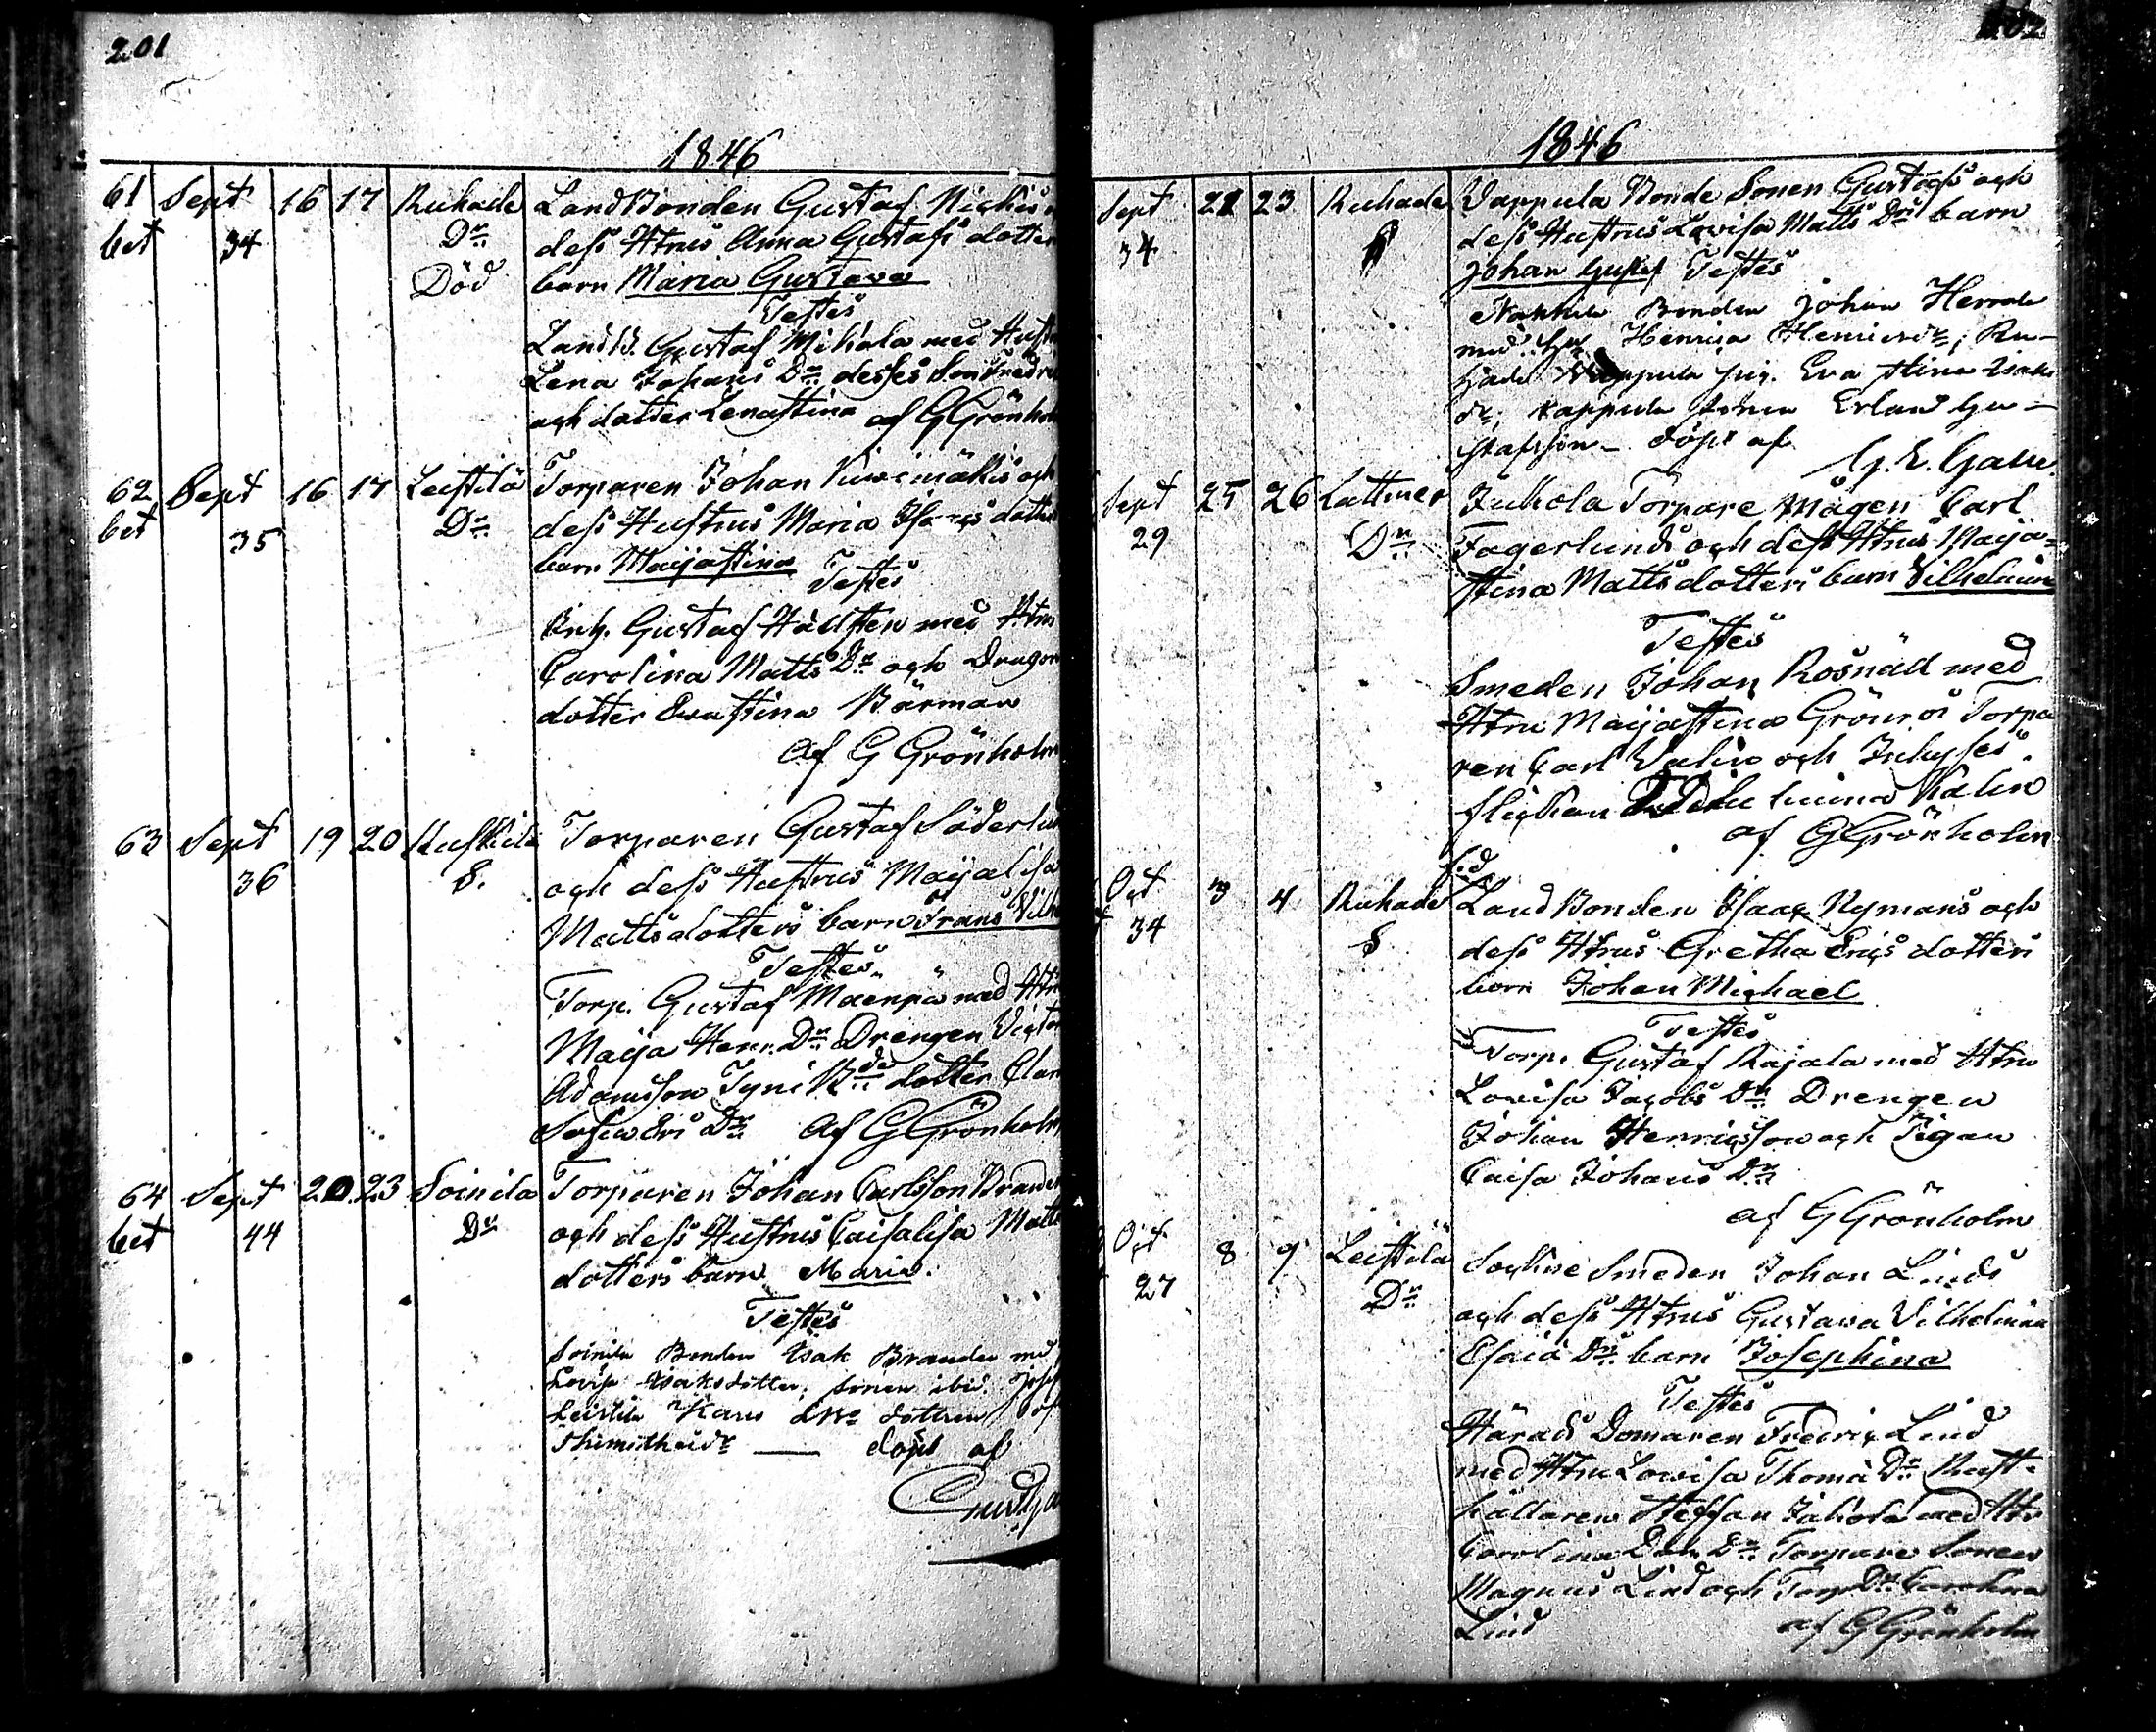 201
1846
61 Sept 16 17 Ruhade LandBonden Gustaf
bet 34 Dr. dess Htrus Anna Gustafs dotter
Död barn Maria Gustava
Testes
Landb. Gustaf Mihala med Hustr
Lena Johans Dr. desses Son Fredri
och dotter Lenastina af GGrönhol
62 Sept 16 17 Leistilä Torparen Johan Kivimäkis och
bet 35 Dr. dess Hustrus Maria dotte
barn Maijastina Testes
Gustaf Hällsten med Htru
Carolina Matts Dr och Dragon
dotter Evastina Bärman
af G Grönholm
63 Sept 19 20 Torparen Gustaf Söderlu
36 S. och dess Hustrus Maijalisa
Mattsdotters barn Frans Vilh
Testes
Torp. Gustaf Maenpä med Htr
Maija Henr. Dr. Drengen Victor
Adamsson Tyni dotter Clar
Dr. af GGrönholm
64 Sept 20 23 Soinila Torparen Johan Carlsson Brand
bet 44 Dr och dess Hustrus Caisalisa Matts
dotters barn Maria.
Testes
Soinila Bonden Isak Brander med
Lovisa Isaksdotter, sonen ibid.
Leistilä dottren
döpt af
1846
Sept 21 23 Ruhade Vappula Bonde Sonen Gustafs och
34 dess Hustrus Lovisa Matts Drs barn
Johan Gustaf Testes
Bonden Johan
med Henrica Henricsdr;
Vappula pig. Eva Stina Isaks
dr; Vappula sonen Erland Gu-
stafsson - döpt af
Sept 25 26 Lattmes Juhola Torpare Mågen Carl
29 Dr. Fagerlunds och dess Htrus Maija-
stina Mattsdotters barn Vilhelmina
Testes
Smeden Johan Rosnäll med
Htru Maijastina Grönros Torpa
ren Carl Valin och Inhyses
flickan Valin
af GGrönholm
Oct 3 4 Ruhade LandBonden Isaac Nymans och
34 S dess Htrus Gretha Erics dotters
barn Johan Michael
Testes
Torp. Gustaf Rajala med Htru
Lovisa Jacobs Dr. Drengen
Johan Henricsson och Pigan
Caisa Johans Dr.
af GGrönholm
Oct 8 9 Leistilä Sockne Smeden Johan Linds
27 Dr. och dess Htrus Gustava Vilhelmina
Esaiæ Drs. barn Josephina
Testes
Härads Domaren Fredric Lind
med Htru Lovisa Thomæ Dr. Rust-
hållaren Steffan Juhola med Htr
Carolina Dr. Torpare Sonen
Magnus Lind och Torp. Dr. Carolina
Lind af GGrönholm